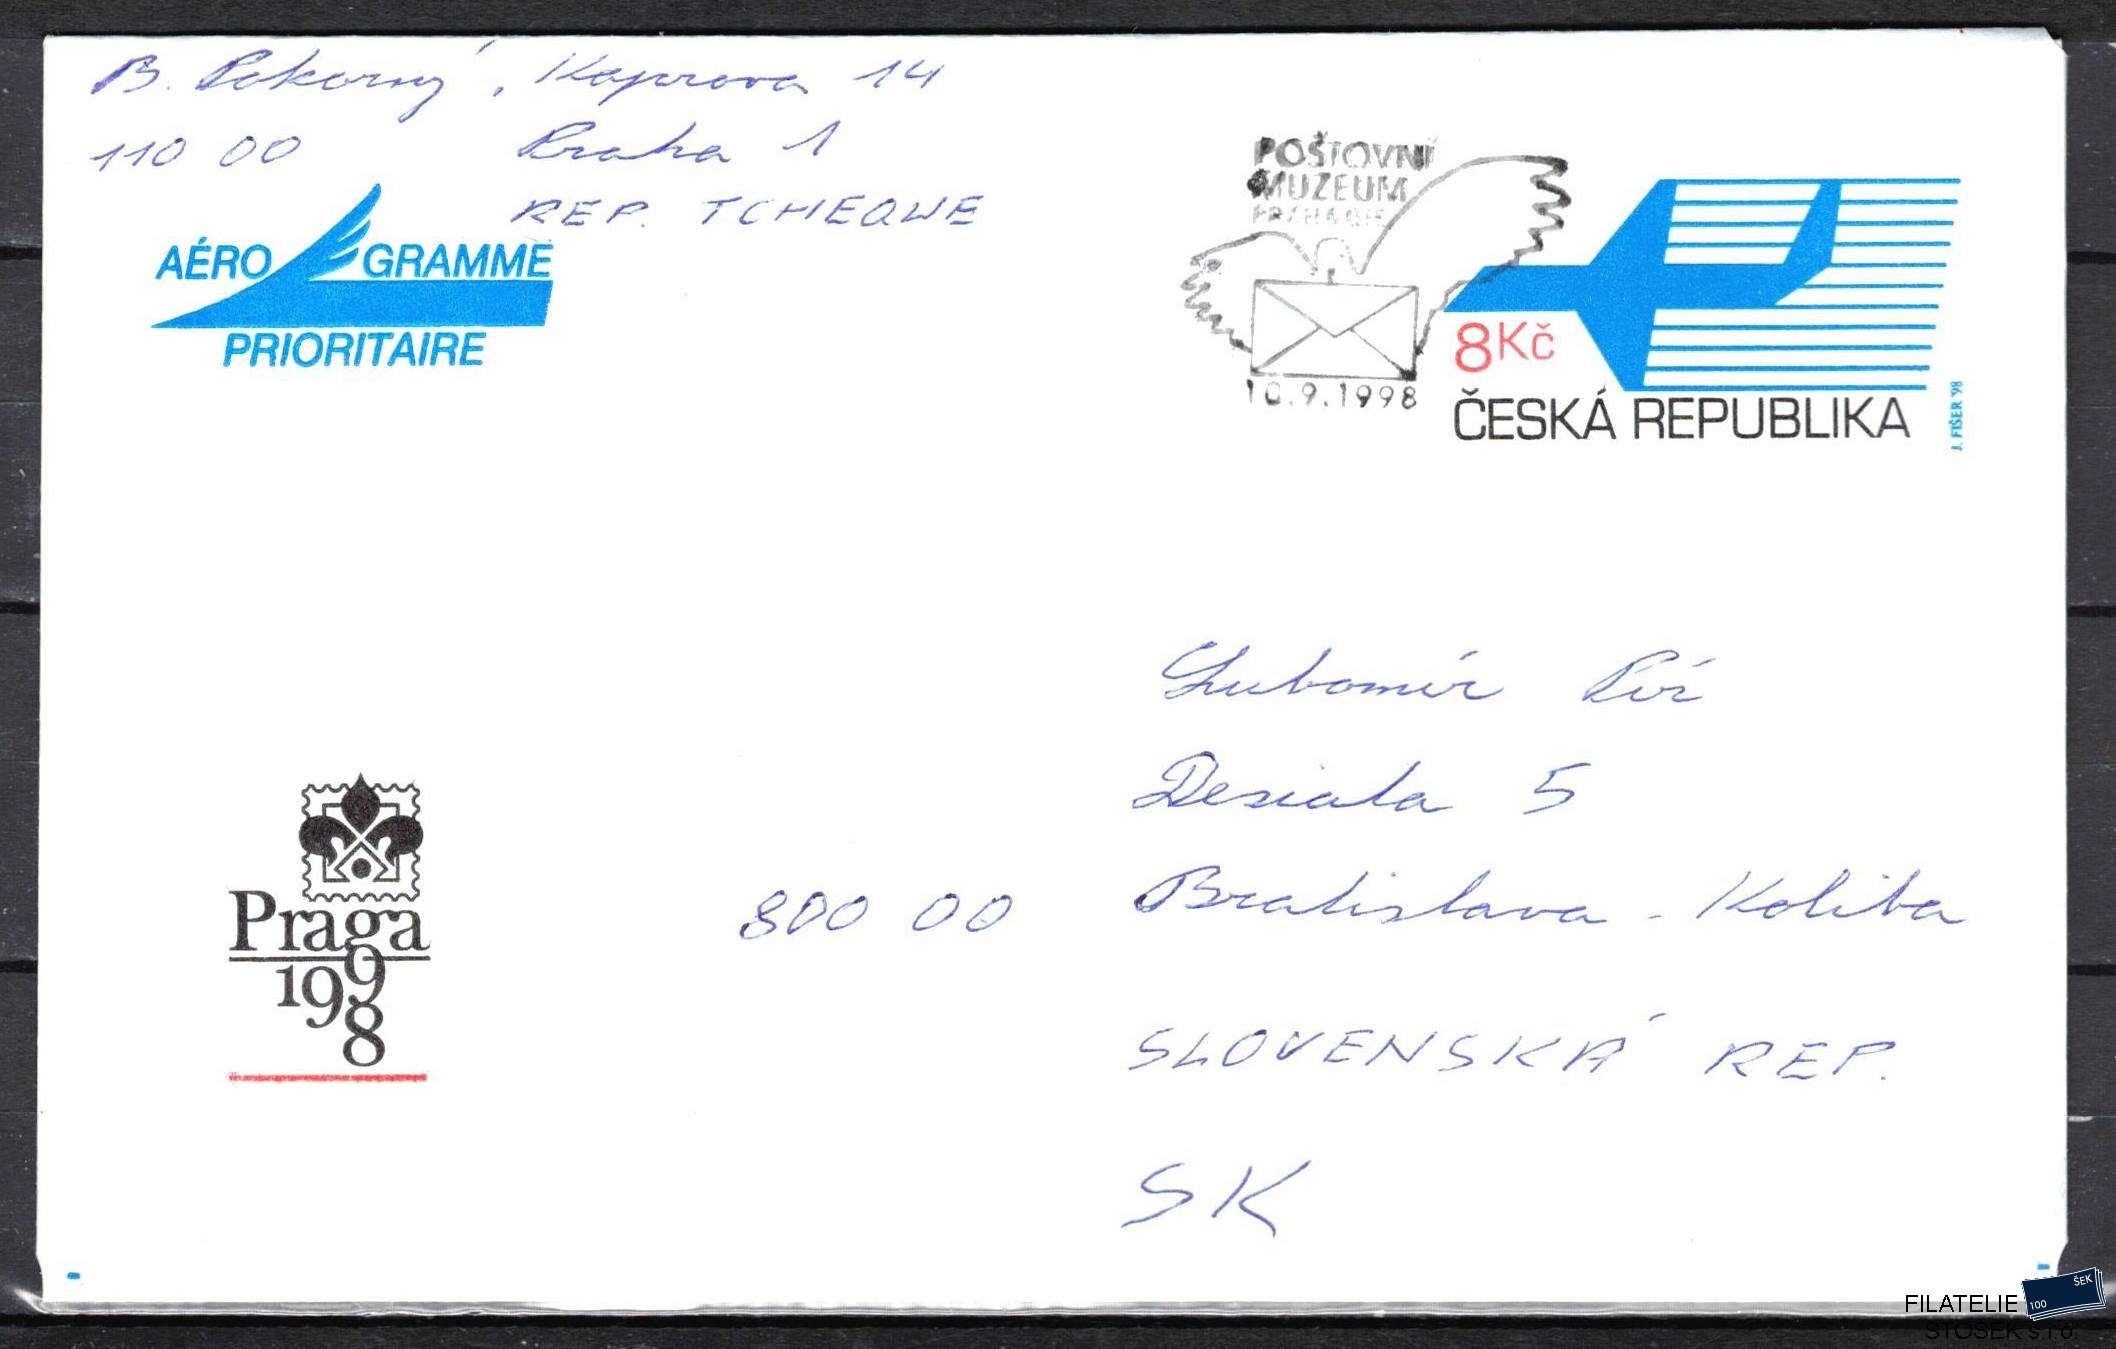 B. Pokorný, Kaprova 14
110 00 Praha 1
REP. TCHEQUE
AÉRO GRAMME
PRIORITAIRE
POŠTOVNÍ
MUZEUM
10.9.1998
8Kč
ČESKÁ REPUBLIKA
J. FIŠER '98
Ľubomír
Desiata 5
800 00 Bratislava - Koliba
SLOVENSKÁ REP.
SK
Praga
1998
ŠEK
100
FILATELIE
STOSEK s.r.o.